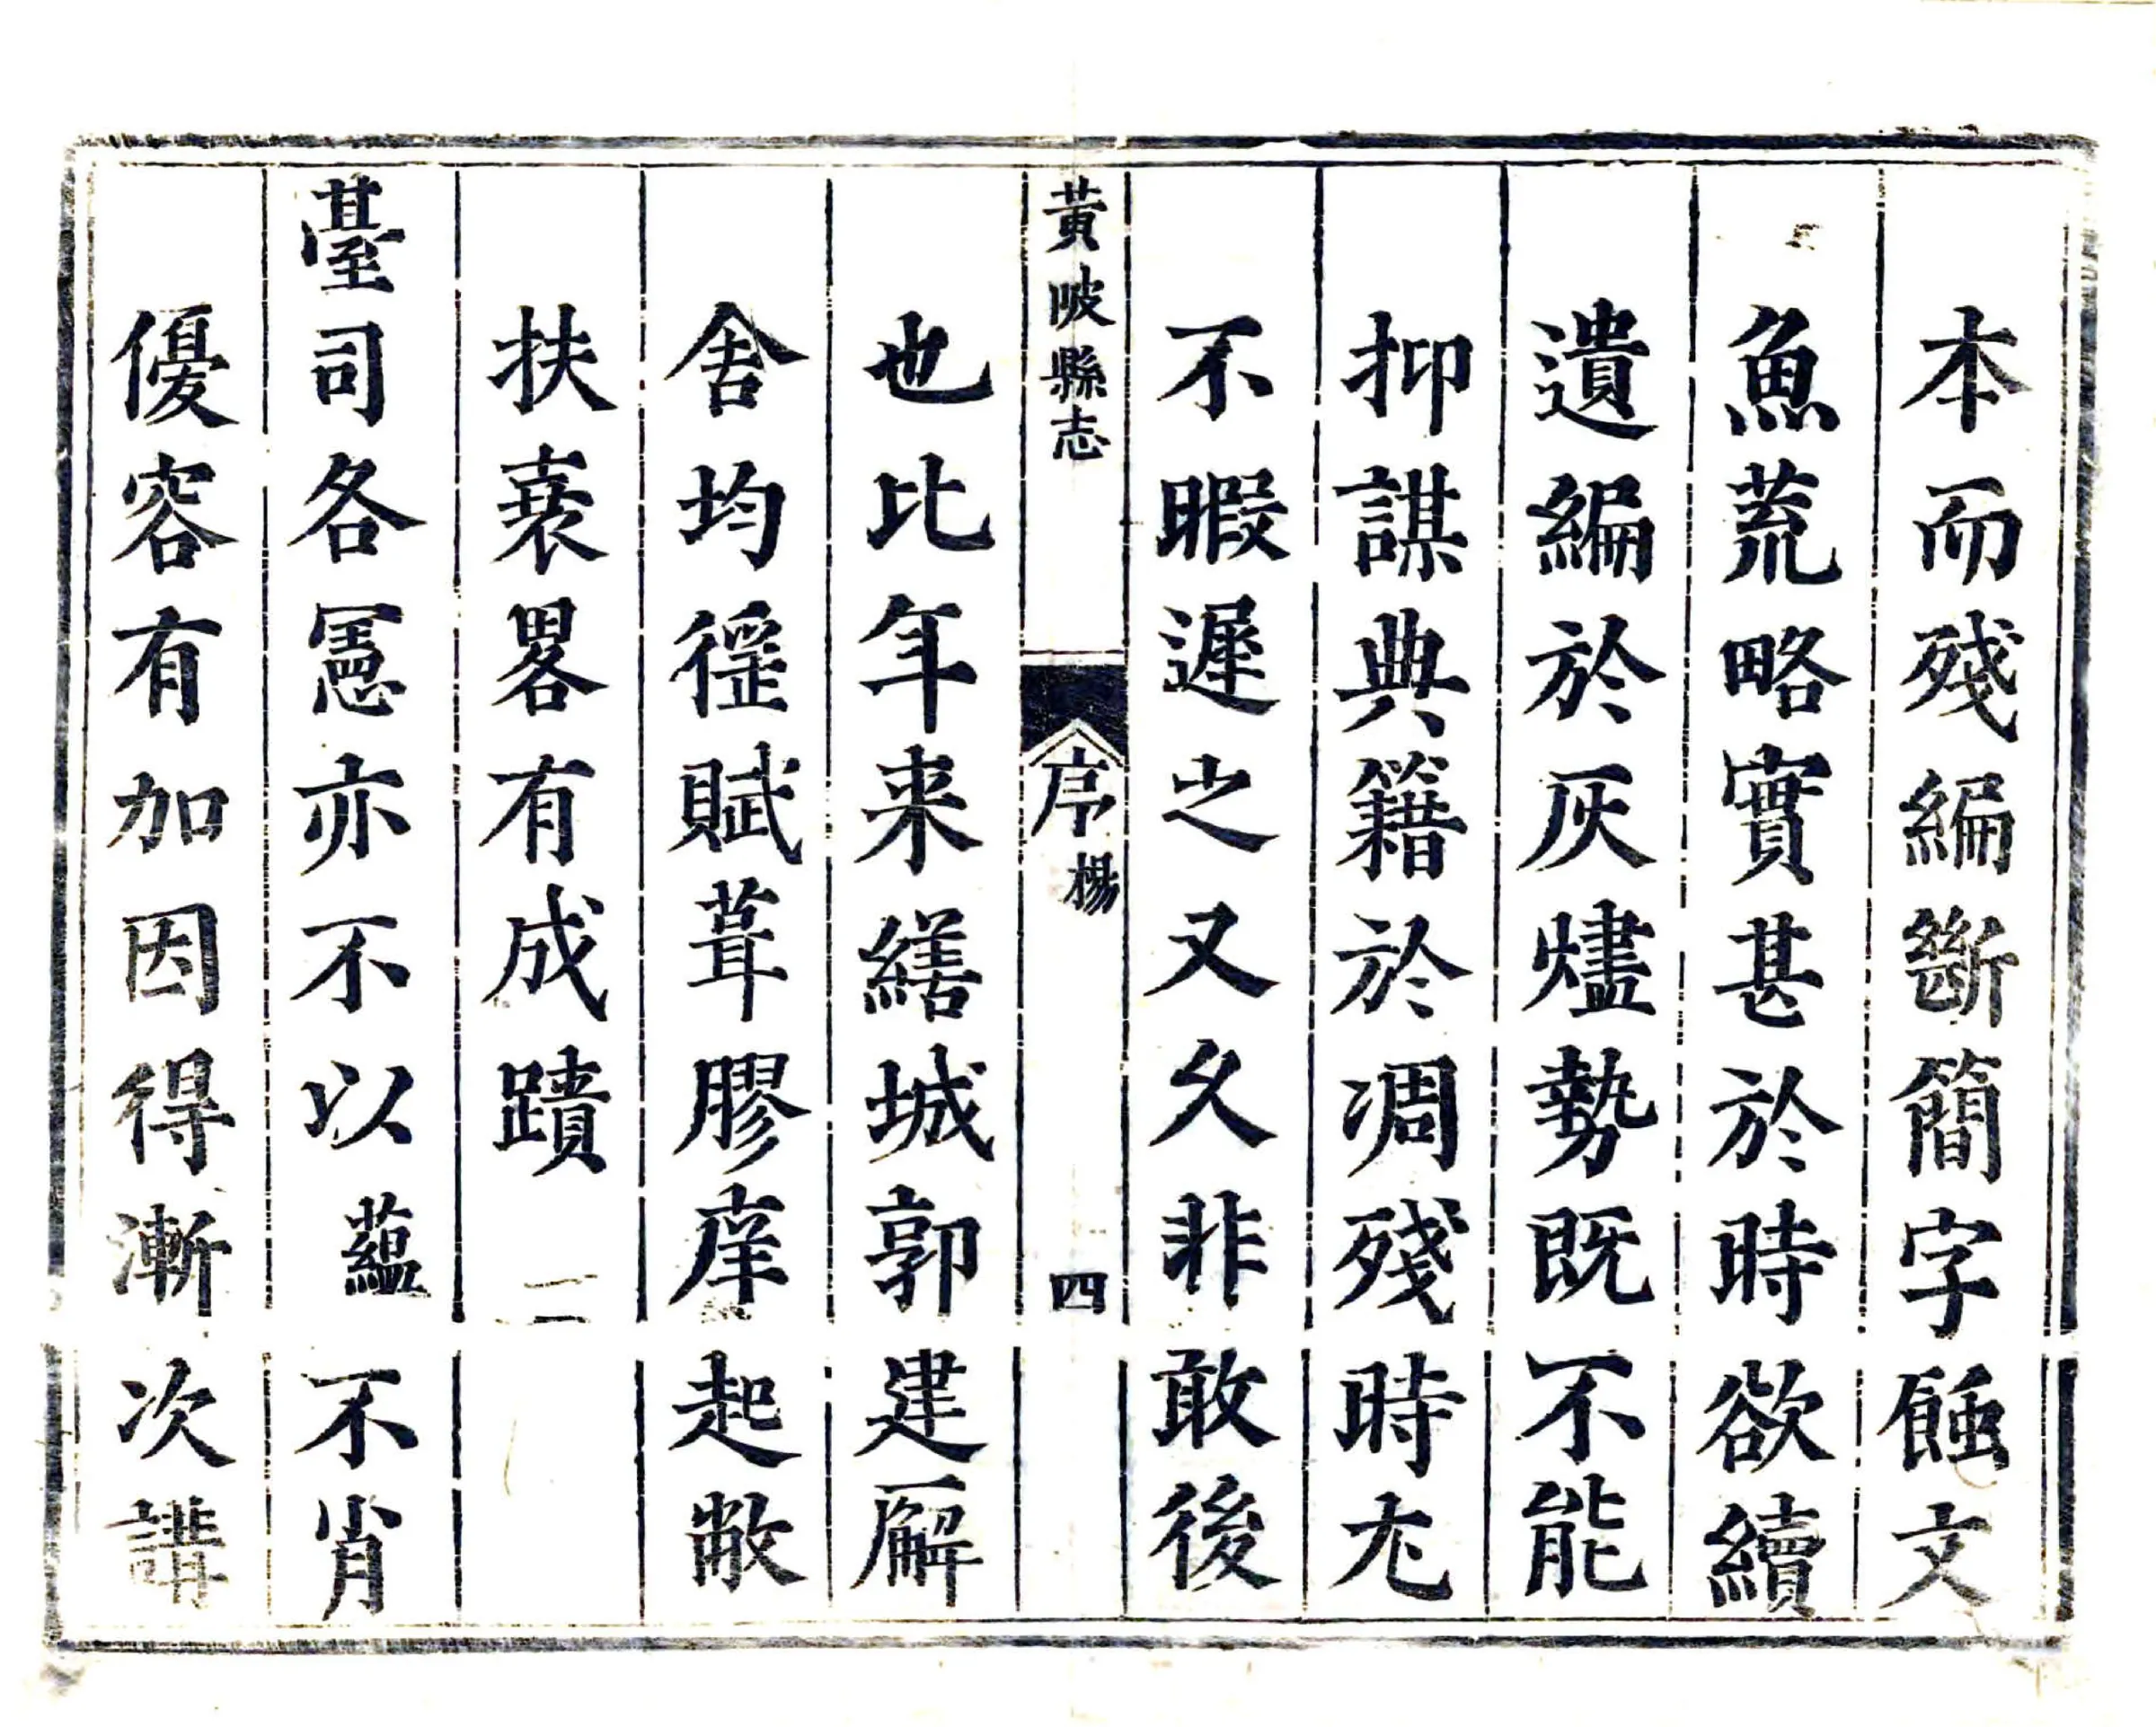 本而殘編斷簡字蝕文
魚荒略實甚於時欲續
遺編於灰燼勢既不能
抑謀典籍於凋殘時尢
不暇遲之又久非敢後
黃陂縣志
序楊
四
也比年来繕城郭建廨
舍均徭賦葺膠庠起敝
扶衰畧有成蹟
臺司各憲亦不以蘊不肖
優容有加因得漸次講